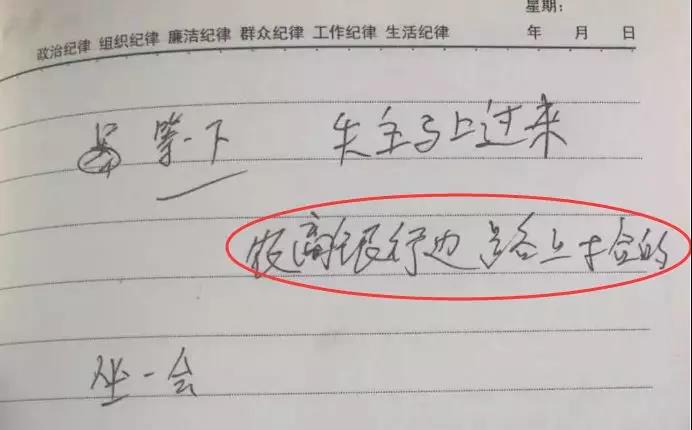 星期:
政治纪律 组织纪律 廉洁纪律 群众纪律 工作纪律 生活纪律 年 月 日
等一下 失主马上过来
农商银行边 路上十合的
坐一会